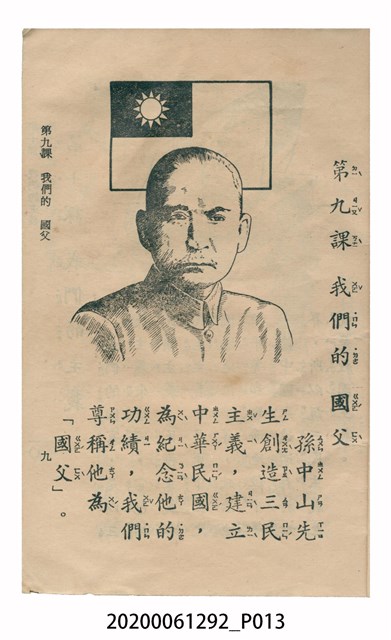 第九課 我們的國父
孫中山先
生創造三民
主義，建立
中華民國，
為紀念他的
功績，我們
尊稱他為
「國父」。
第九課 我們的 國父
九
20200061292_P013